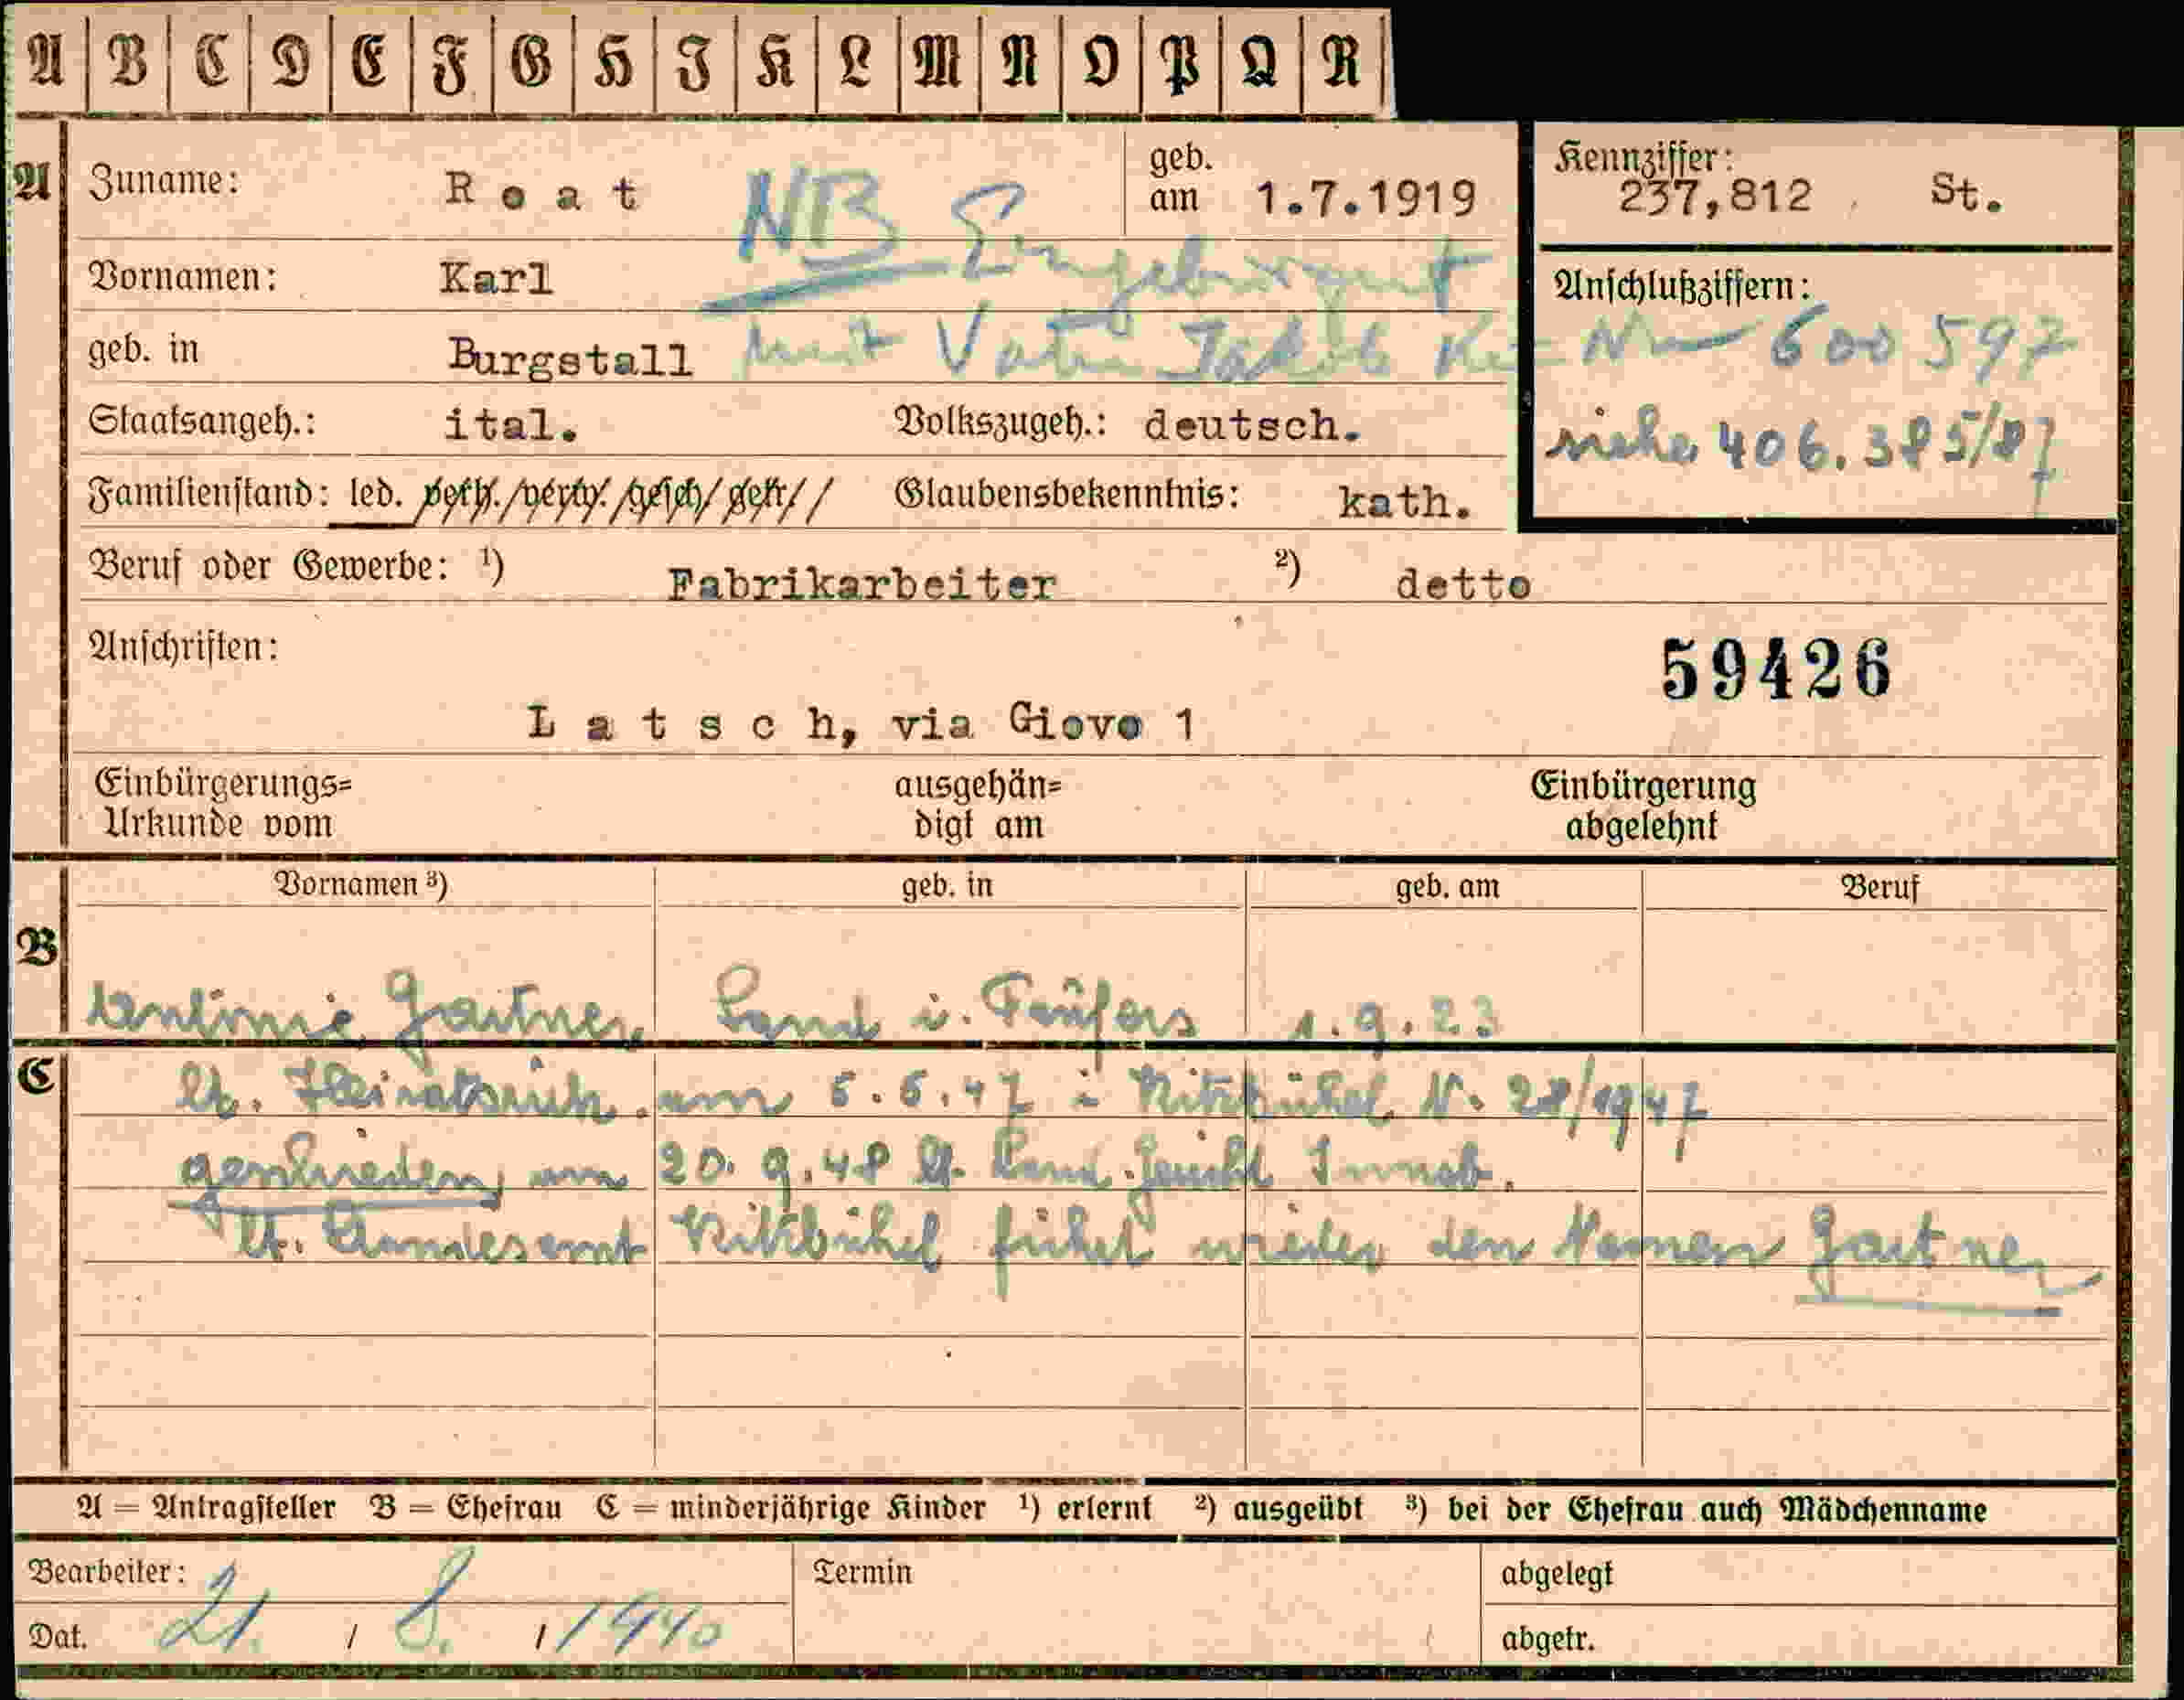 A B C D E F G H I K L M N O P Q R
A Zuname: Roat geb. am 1.7.1919
Kennziffer: 237,812 St.
NB Eingebürgert
Vornamen: Karl
Anschlußziffern:
geb. in Burgstall mit Vater Jakob Ke-Nr 600597
Staatsangeh.: ital. Volkszugeh.: deutsch.
siehe 406.385/87
Familienstand: led. verh./verw./gesch/getr// Glaubensbekenntnis: kath.
Beruf oder Gewerbe: ¹) Fabrikarbeiter ²) detto
Anschriften:
59426
Latsch, via Giovo 1
Einbürgerungs= Urkunde vom ausgehän= digt am Einbürgerung abgelehnt
Vornamen ³) geb. in geb. am Beruf
B
Antonie Gartner, Sand i. Taufers 1.9.23
C
lt. Heiratsurk. am 5.5.47 i Kitzbühel N. 28/1947
geschieden, am 20.9.48 lt. Land.Gericht Innsb.
lt. Standesamt Kitzbühel führt wieder den Namen Gartner
A = Antragsteller B = Ehefrau C = minderjährige Kinder ¹) erlernt ²) ausgeübt ³) bei der Ehefrau auch Mädchenname
Bearbeiter: Termin abgelegt
Dat. 21. / 8. / 1940 abgetr.